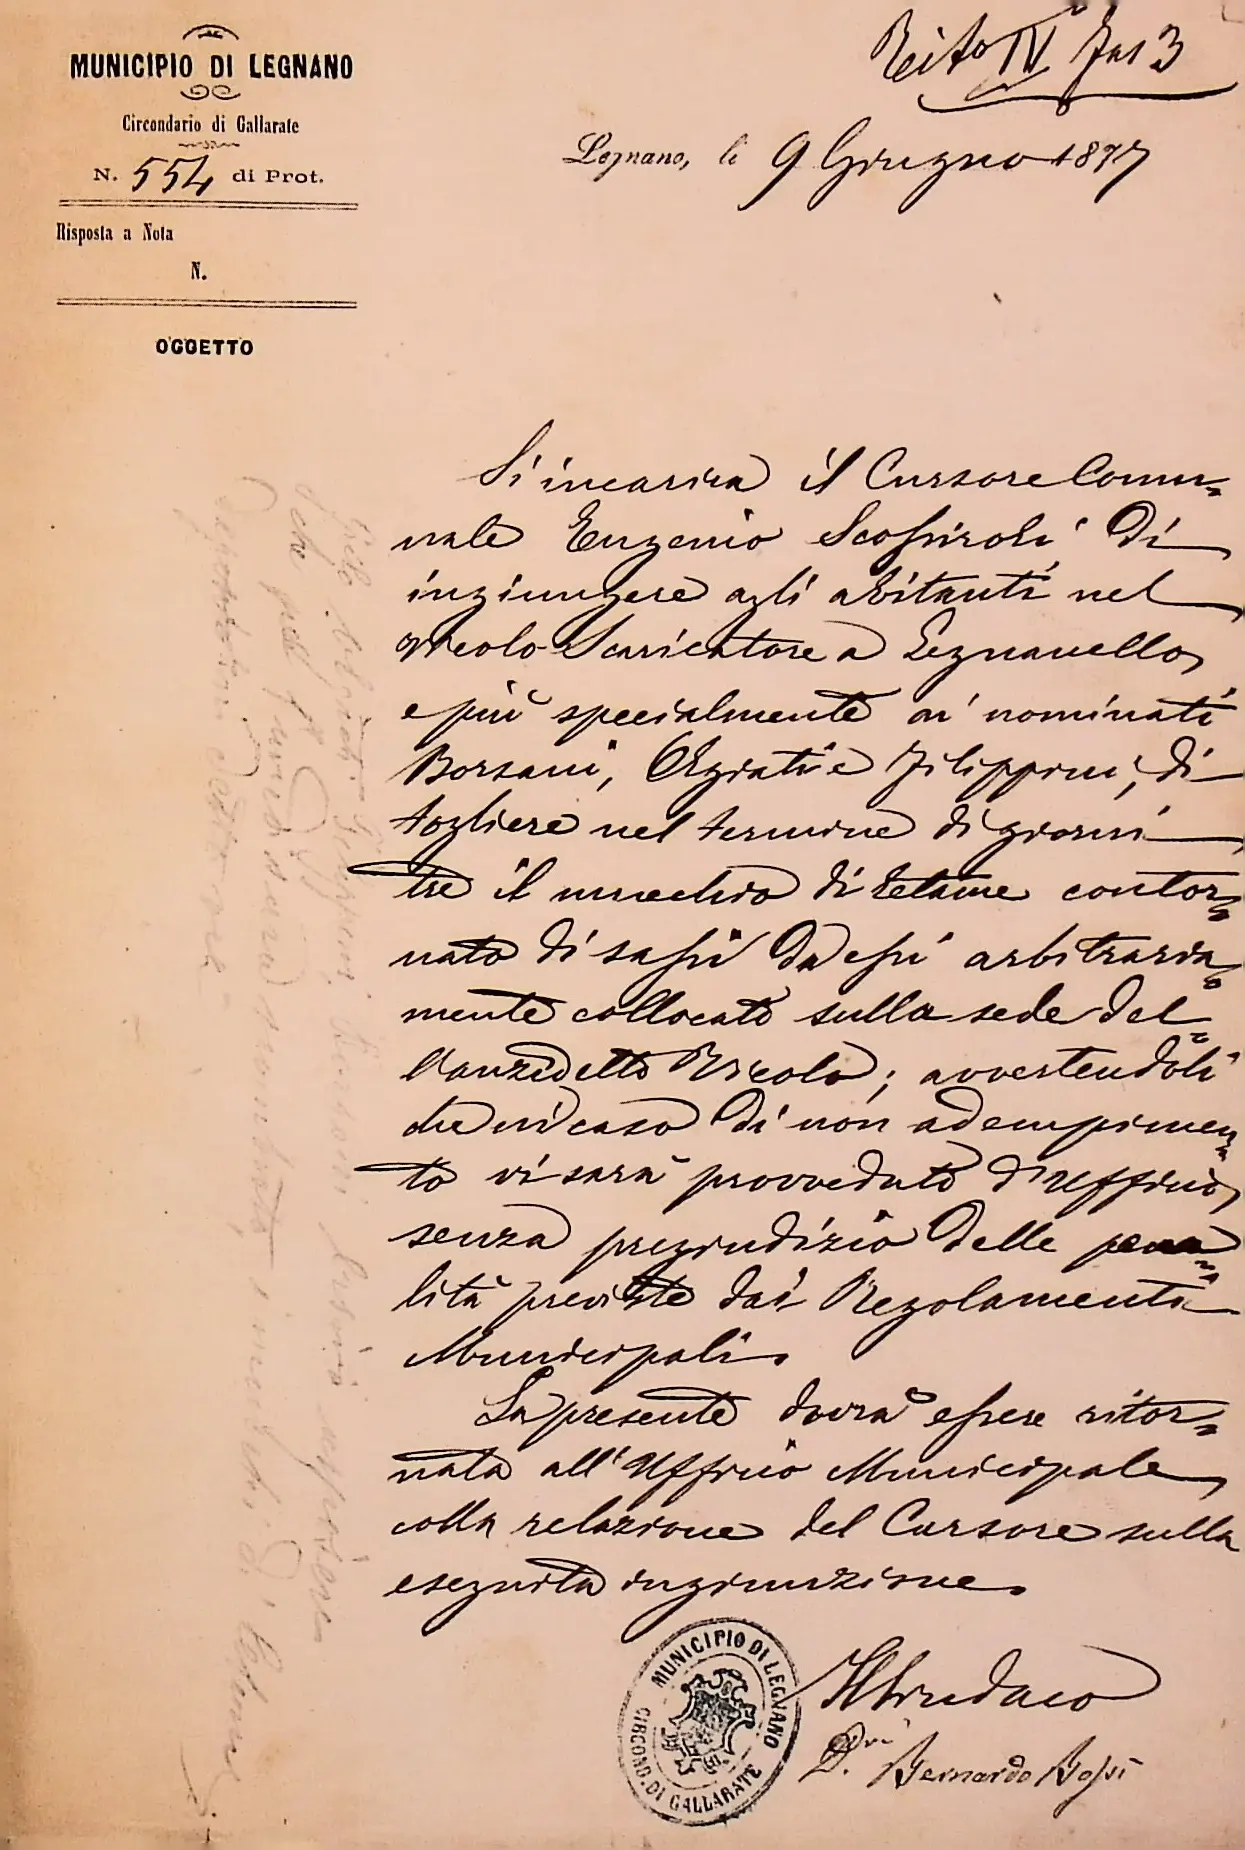 MUNICIPIO DI LEGNANO
Circondario di Gallarate
N. 554 di Prot.
Risposta a Nota
N.
OGGETTO
IV Fas 3
Legnano, li 9 Giugno 1877
Si incarica il Cursore Comu=
nale Eugenio di
ingiungere agli abitanti nel
vicolo Scaricatore a Legnanello,
e più specialmente ai nominati
Borsani, Agrati e Filippini, di
togliere nel termine di giorni
tre il mucchio di letame contor=
nato di sassi da essi arbitraria=
mente collocato sulla sede del=
l'anzidetto Vicolo; avvertendoli
che in caso di non adempimen=
to vi sarà provveduto d'Ufficio,
senza pregiudizio delle pena=
lità previste dai Regolamenti
Municipali.
La presente dovrà essere ritor=
nata all'Ufficio Municipale,
colla relazione del Cursore sulla
eseguita ingiunzione.
Il Sindaco
D. Bernardo Rossi
MUNICIPIO DI LEGNANO
CIRCOND. DI GALLARATE